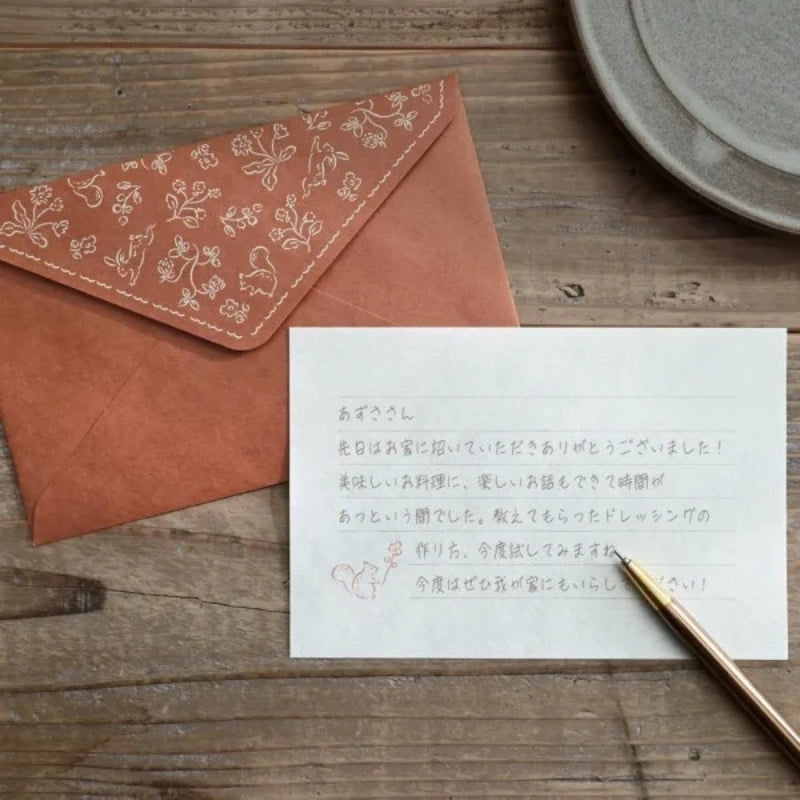 あずささん
先日はお家に招いていただきありがとうございました！
美味しいお料理に、楽しいお話もできて時間が
あっという間でした。教えてもらったドレッシングの
作り方、今度試してみますね
今度はぜひ我が家にもいらしてください！